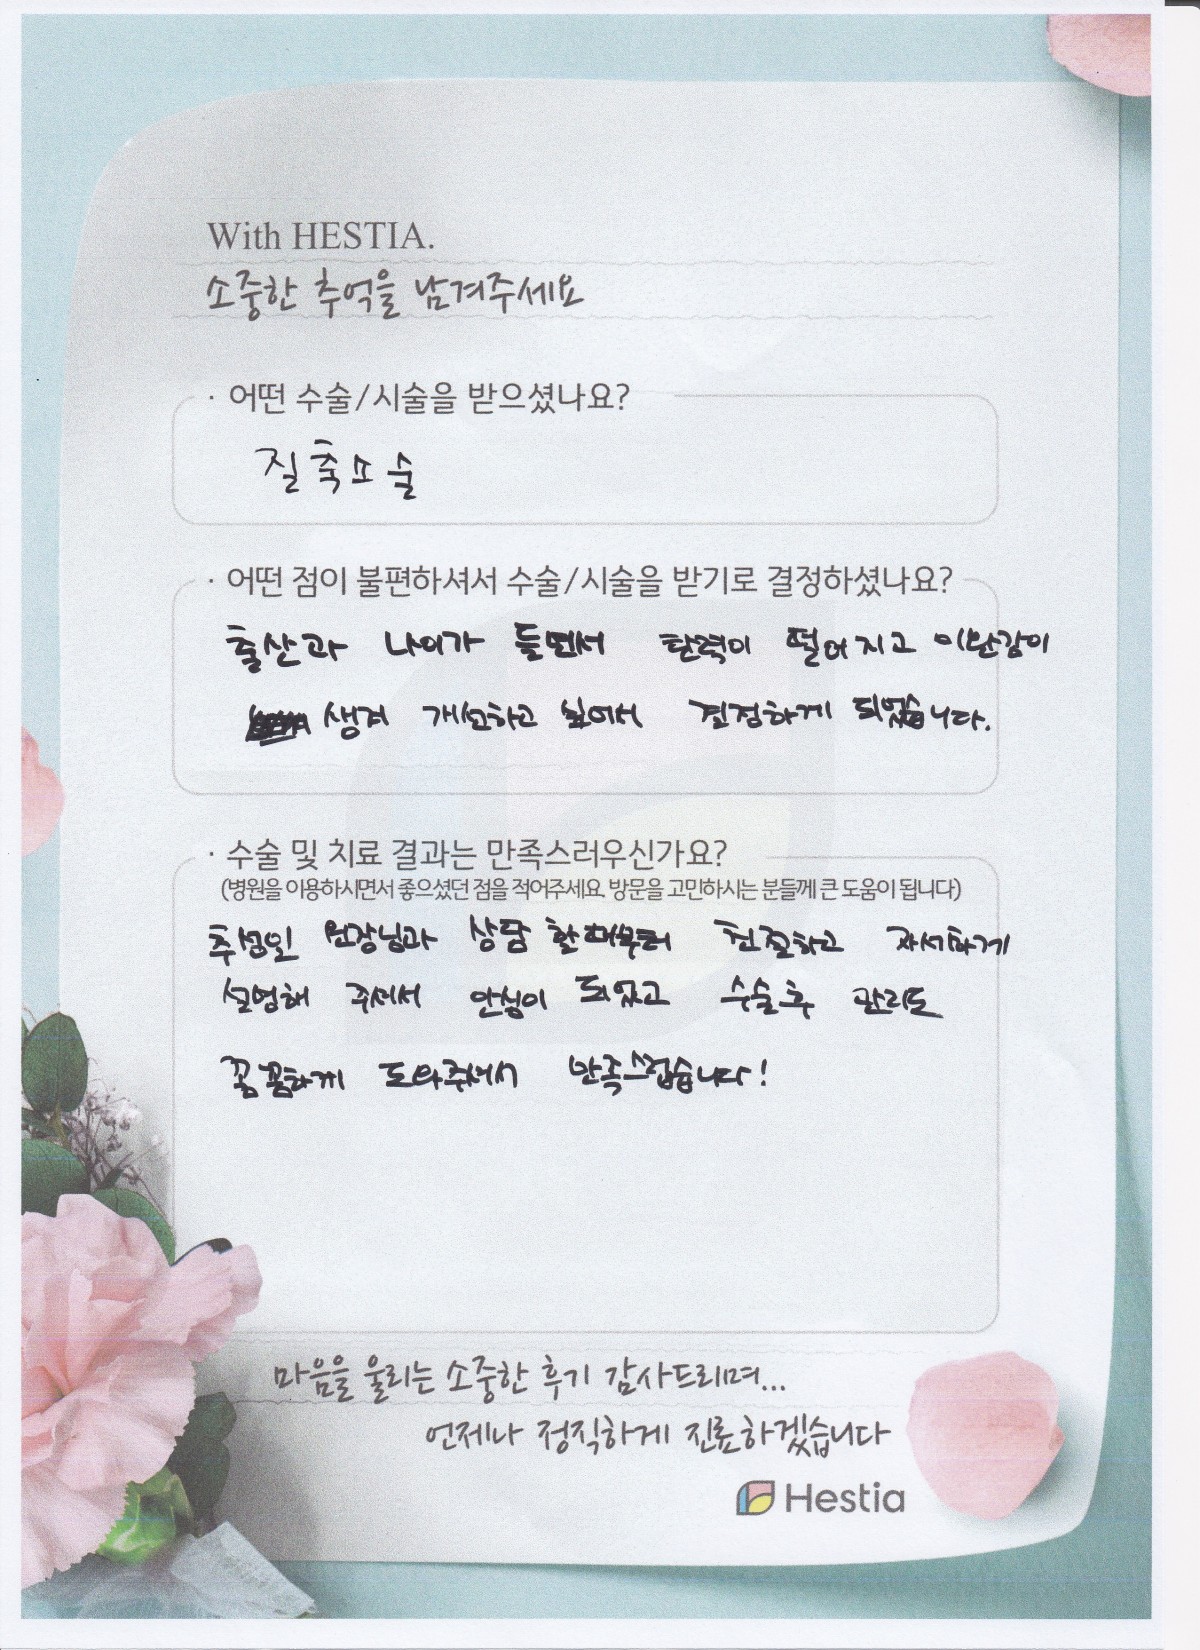 With HESTIA.
소중한 추억을 남겨주세요
· 어떤 수술/시술을 받으셨나요?
질축소술
· 어떤 점이 불편하셔서 수술/시술을 받기로 결정하셨나요?
출산과 나이가 들면서 탄력이 떨어지고 이완감이
생겨 개선하고 싶어서 결정하게 되었습니다.
· 수술 및 치료 결과는 만족스러우신가요?
(병원을 이용하시면서 좋으셨던 점을 적어주세요. 방문을 고민하시는 분들께 큰 도움이 됩니다)
추성일 원장님과 상담 할때부터 친절하고 자세하게
설명해 주셔서 안심이 되었고 수술후 관리도
꼼꼼하게 도와주셔서 만족스럽습니다!
마음을 울리는 소중한 후기 감사드리며...
언제나 정직하게 진료하겠습니다
Hestia